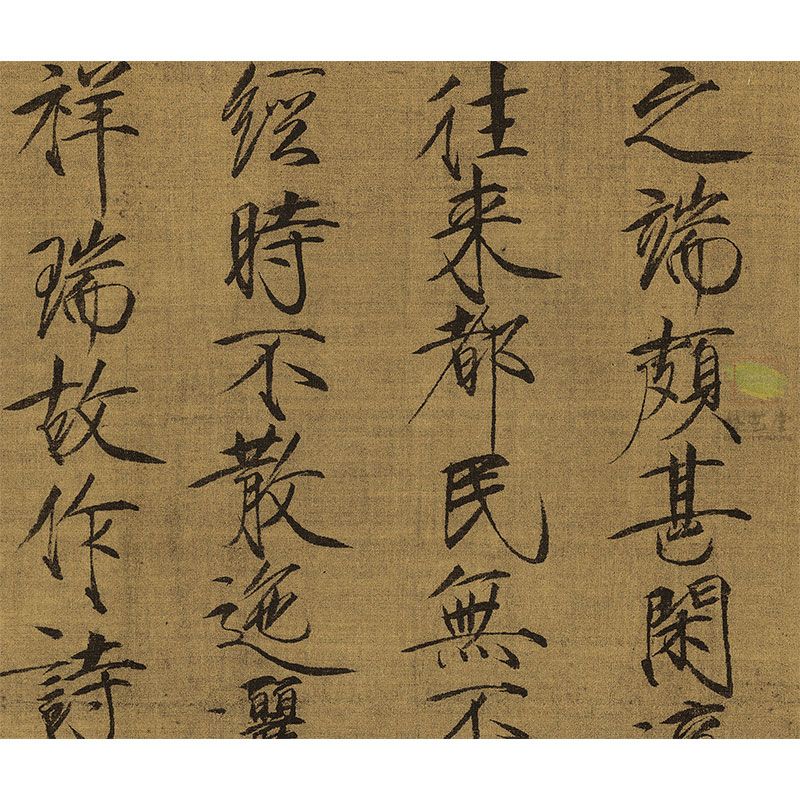 之端頗甚閑
往來都民無不
經時不散迤
祥瑞故作詩